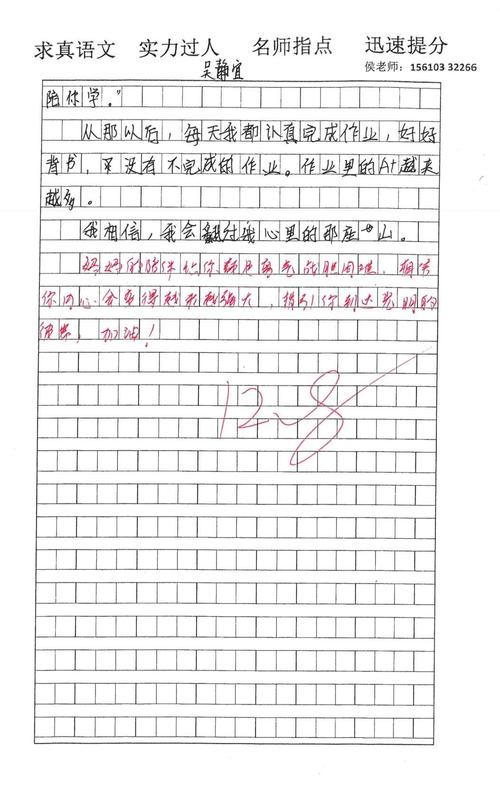 求真语文 实力过人 名师指点 迅速提分
吴静宜 侯老师：156103 32266
陪你学。”
从那以后，每天我都认真完成作业，好好
背书，不没有不完成的作业。作业里的A+越来
越多。
我相信，我会翻过我心里的那座山。
妈妈的陪伴让你满是勇气战胜困难，相信
你内心会变得越来越强大，指引你到达光明的
彼岸，加油！
12.8